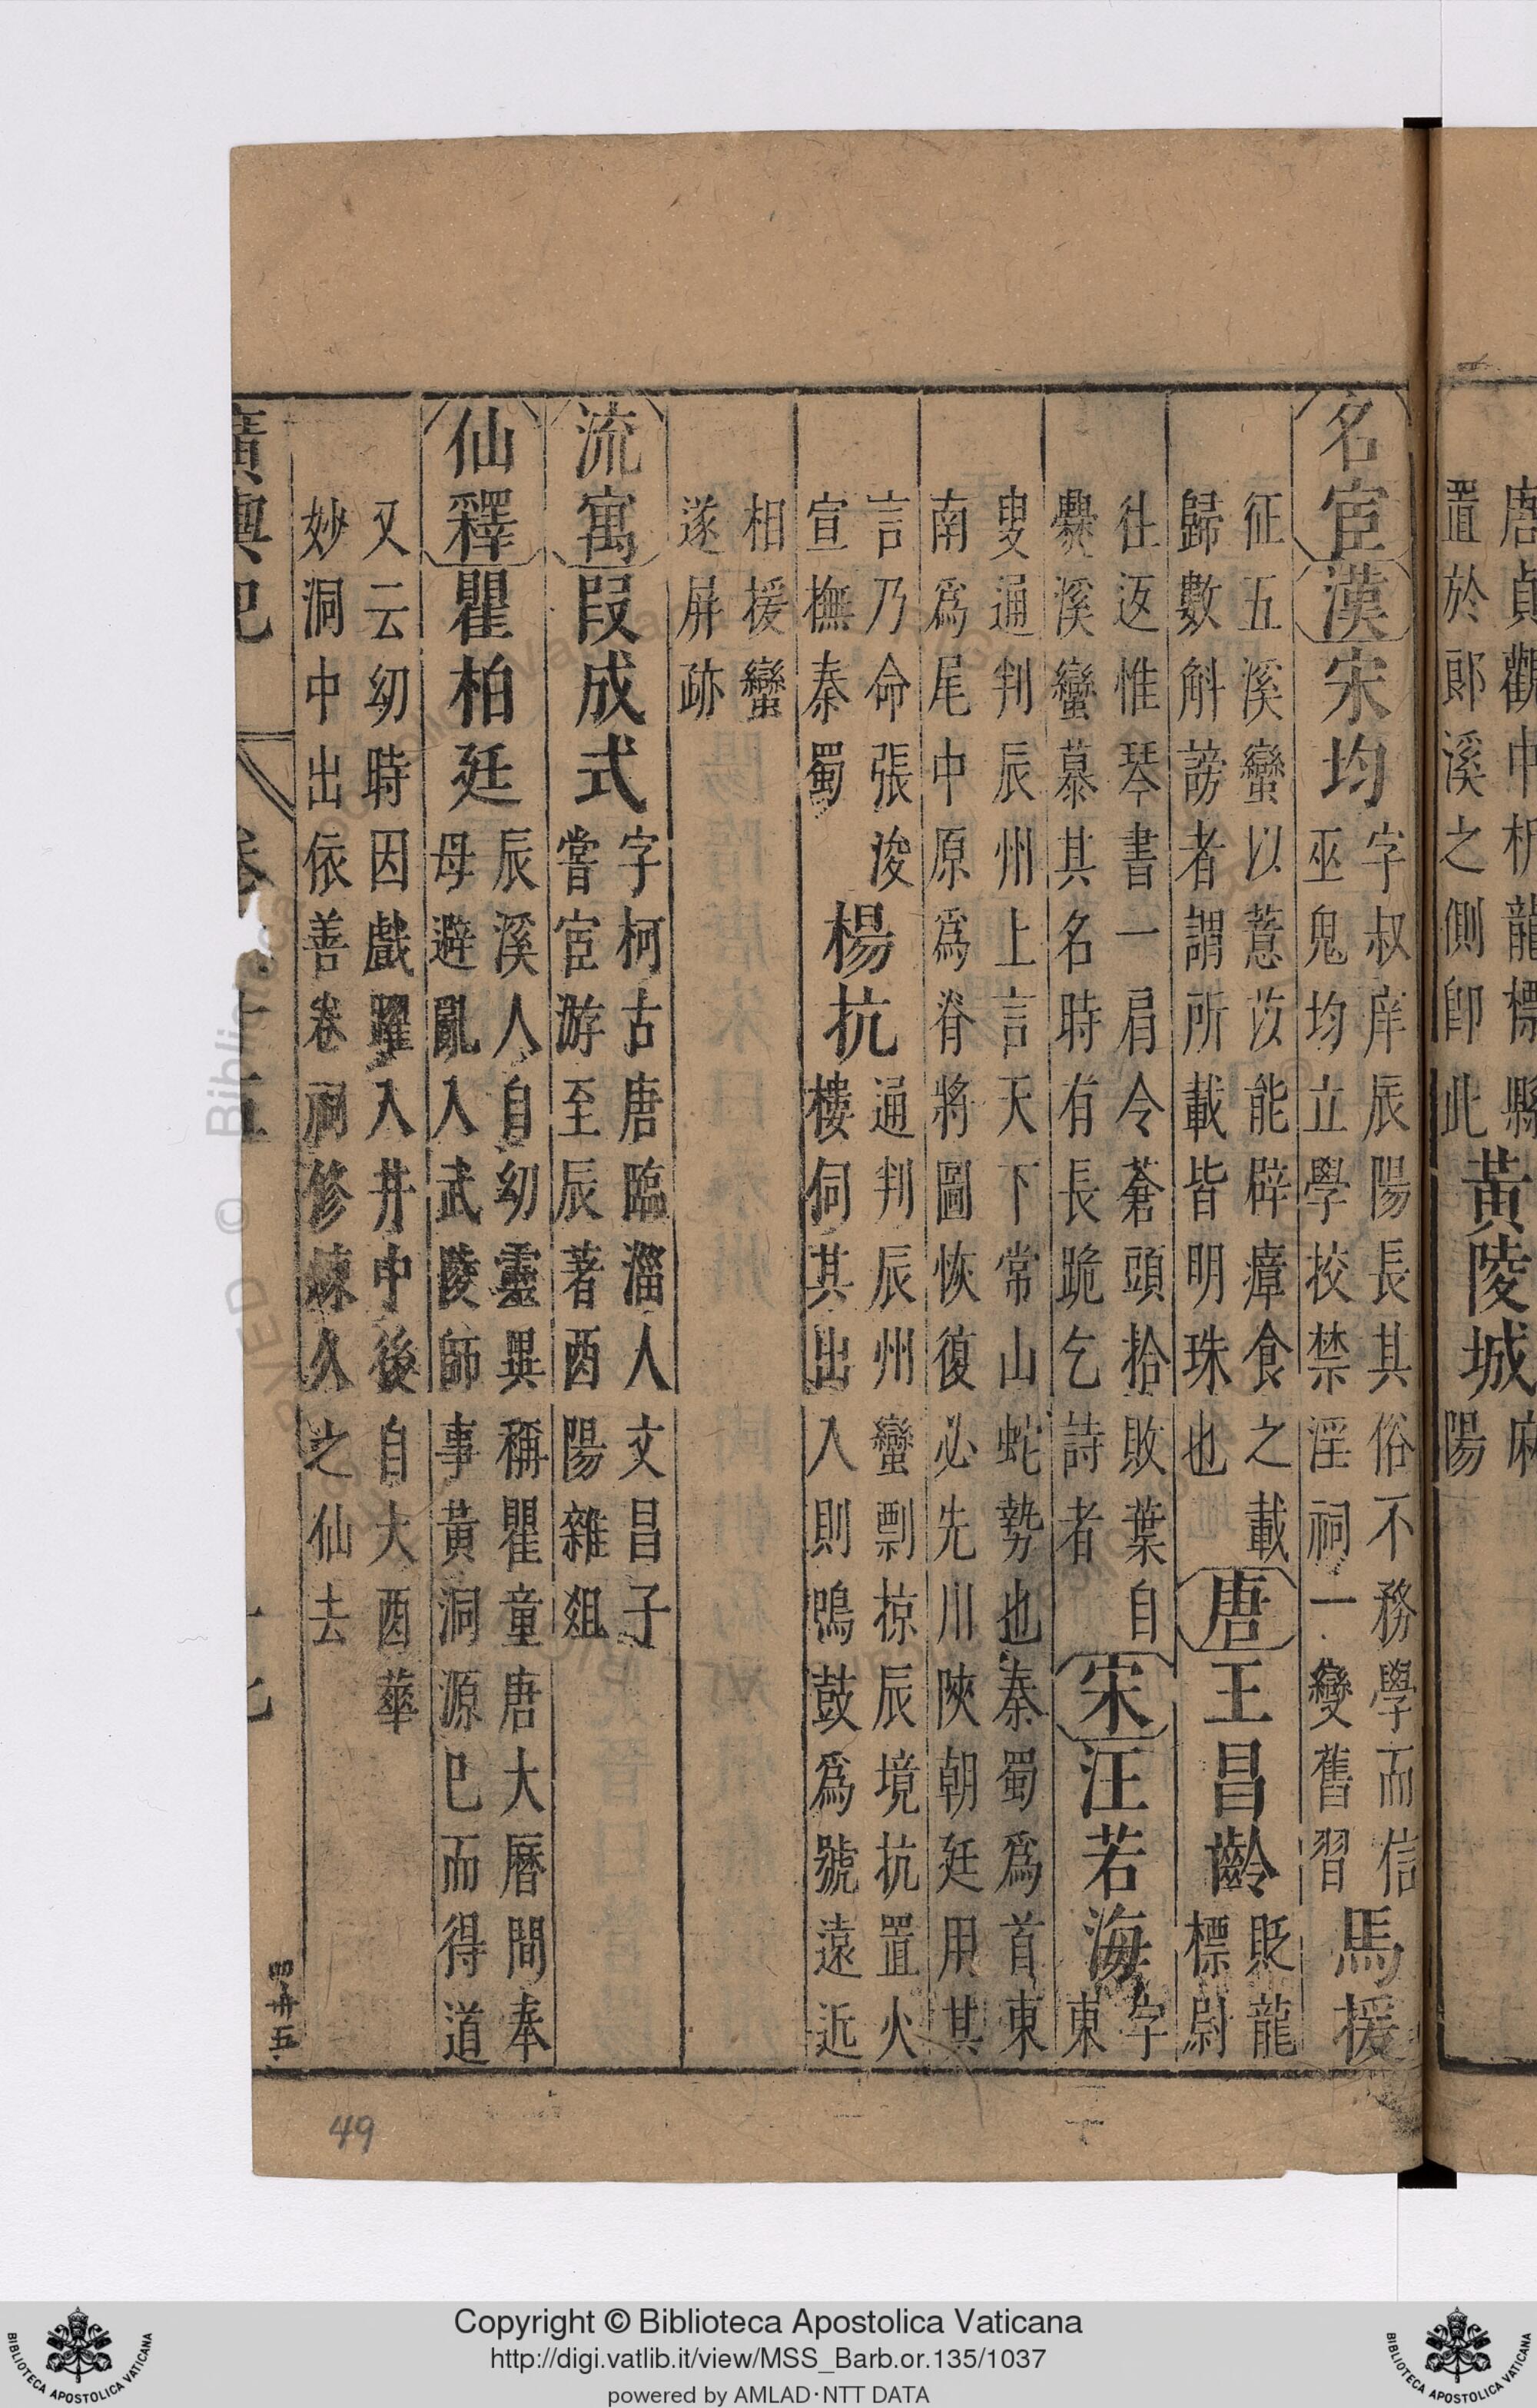 唐貞觀中析龍標縣
置於郎溪之側卽此
黃陵城
麻
陽
名宦 漢 宋均
字叔庠辰陽長其俗不務學而信
巫鬼均立學挍禁淫祠一變舊習
馬援
征五溪蠻以薏苡能辟瘴食之載
歸數斛謗者謂所載皆明珠也
唐 王昌齡
貶龍
標尉
往返惟琴書一肩令蒼頭拾敗葉自
爨溪蠻慕其名時有長跪乞詩者
宋 汪若海
字
東
叟通判辰州上言天下常山蛇勢也秦蜀爲首東
南爲尾中原爲脊將圖恢復必先川陝朝廷用其
言乃命張浚
宣撫秦蜀
楊抗
通判辰州蠻剽掠辰境抗置火
樓伺其出入則鳴鼓爲號遠近
相援蠻
遂屏跡
流寓 段成式
字柯古唐臨淄人文昌子
嘗宦游至辰著酉陽雜俎
仙釋 瞿柏廷
辰溪人自幼靈異稱瞿童唐大曆間奉
母避亂入武陵師事黃洞源巳而得道
又云幼時因戲躍入井中後自大酉華
妙洞中出依善卷祠修煉久之仙去
廣輿記
卷十五
四卅五
49
Copyright © Biblioteca Apostolica Vaticana
http://digi.vatlib.it/view/MSS_Barb.or.135/1037
powered by AMLAD·NTT DATA
BIBLIOTECA APOSTOLICA VATICANA
BIBLIOTECA APOSTOLICA VATICANA